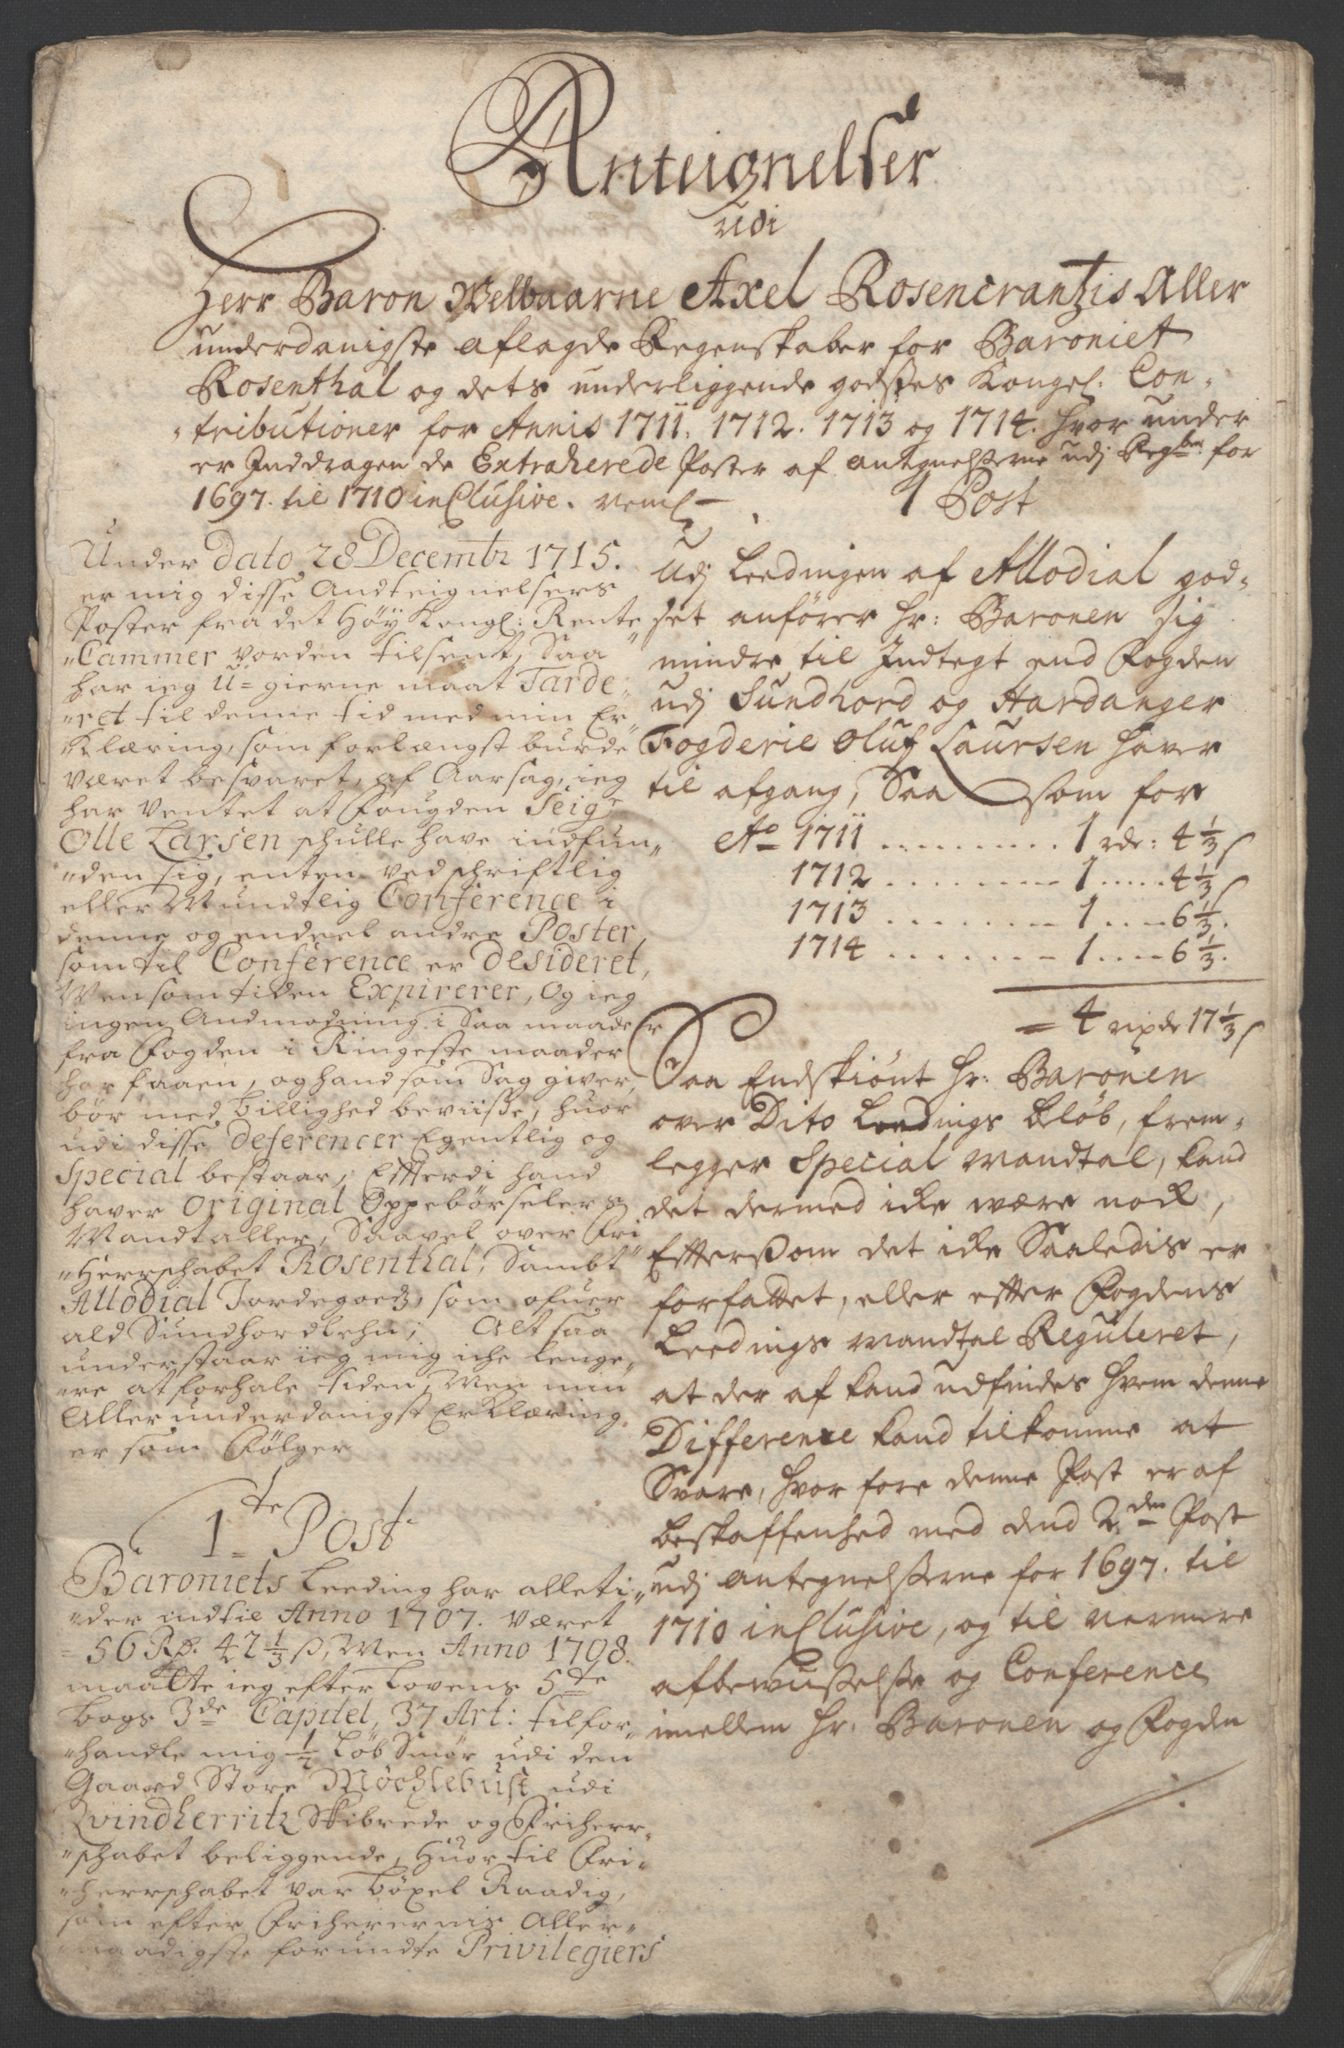 Anteignelser
udi
Herr Baron Welbaarne Axel Rosencrantzis Aller
underdanigste aflagde Regenskaber for Baroniet
Rosenthal og dets underliggende godsses Kongel. Con-
tributioner for Annis 1711. 1712. 1713 og 1714. hvor under
er Inddragen de Extraherede Poster af antegnelsserne udj Regben for
1697. til 1710 inClusive. neml
Under Dato 28 Decembr 1715.
er mig disse Andteignelsers
Poster fra det Høy Kongl: Rente
"Cammer vorden tilsent, Saa
har ieg U=gierne maat Tarde-
"ret til denne tid med min Er-
Klæring, som forlængst burde
været besvaret, af Aarsag, ieg
har Ventet at Fougden Seigr
Olle Larsen schulle have indfun-
"den sig, enten ved schriftlig
eller Mundtlig Conference i
denne og endeel andre Poster,
som til Conference er Desideret,
Men som tiden Expirerer, og ieg
ingen Andmodning i Saa maader
fra Fogden i Ringeste maader
har faaen, og hand som Sag giver,
bør med billighed beviisse, huor
udi disse Deferencer Egentlig og
Special bestaar, Effterdi hand
haver Original Oppebörselers
Mandtaller, Saavel over Fri
"Herrschabet Rosenthal, Sambt
Allodial Jordegoedz, som ofuer
ald Sundhordlehn; Alt saa
understaar ieg mig iche lenge-
"re at forhale tiden, Men min
Aller underdanigst ErKlæring
er som Følger
1te Post
Baroniets Leeding har alleti-
"der indtil Anno 1707. været
56 Rd. 42 1/3 ß, Men Anno 1708.
maatte ieg efter Lovens 5te
bogs 3de Capitel, 37 Art: tilfor-
"handle mig 1/2 Löb Smör udi den
Gaard Store Møchlebust udi
Qvindherritz Skibrede og Friherr-
"schabet beliggende, Huor til Fri-
"herrschabet var Böxel Raadig,
som efter Friherernis Aller-
naadigste forundte Privilegiers
1 Post
Udj Leedningen af Allodial god-
set anfører Hr: Baronen sig
mindre til Indtegt end Fogden
udj Sundhord og Hardanger
Fogderie Oluf Laursen haver
til afgang, Saa som for
Ao 1711 .......... 1 rdr: 4 1/3 ß
1712 .......... 1 ..... 4 1/3 ß
1713 .......... 1 .... 6 1/3.
1714 .......... 1 .... 6 1/3.
= 4 rixdr 17 1/3 ß
Saa Endskiönt Hr: Baronen
over Dito Leednings beløb, frem-
legger Special mandtal, kand
det dermed icke være nock,
Effterßom det icke Saaledis er
forfattet, eller efter Fogdens
Leednings mandtal Reguleret,
at der af kand udfindes hvem denne
Difference kand tilkomme at
Svare, hvor fore denne Post er af
beskaffenhed med dend 2den Post
udj antegnelsserne for 1697. til
1710 inClusive, og til nermere
afbewusselsse og Conference
imellem Hr: Baronen og Fogden